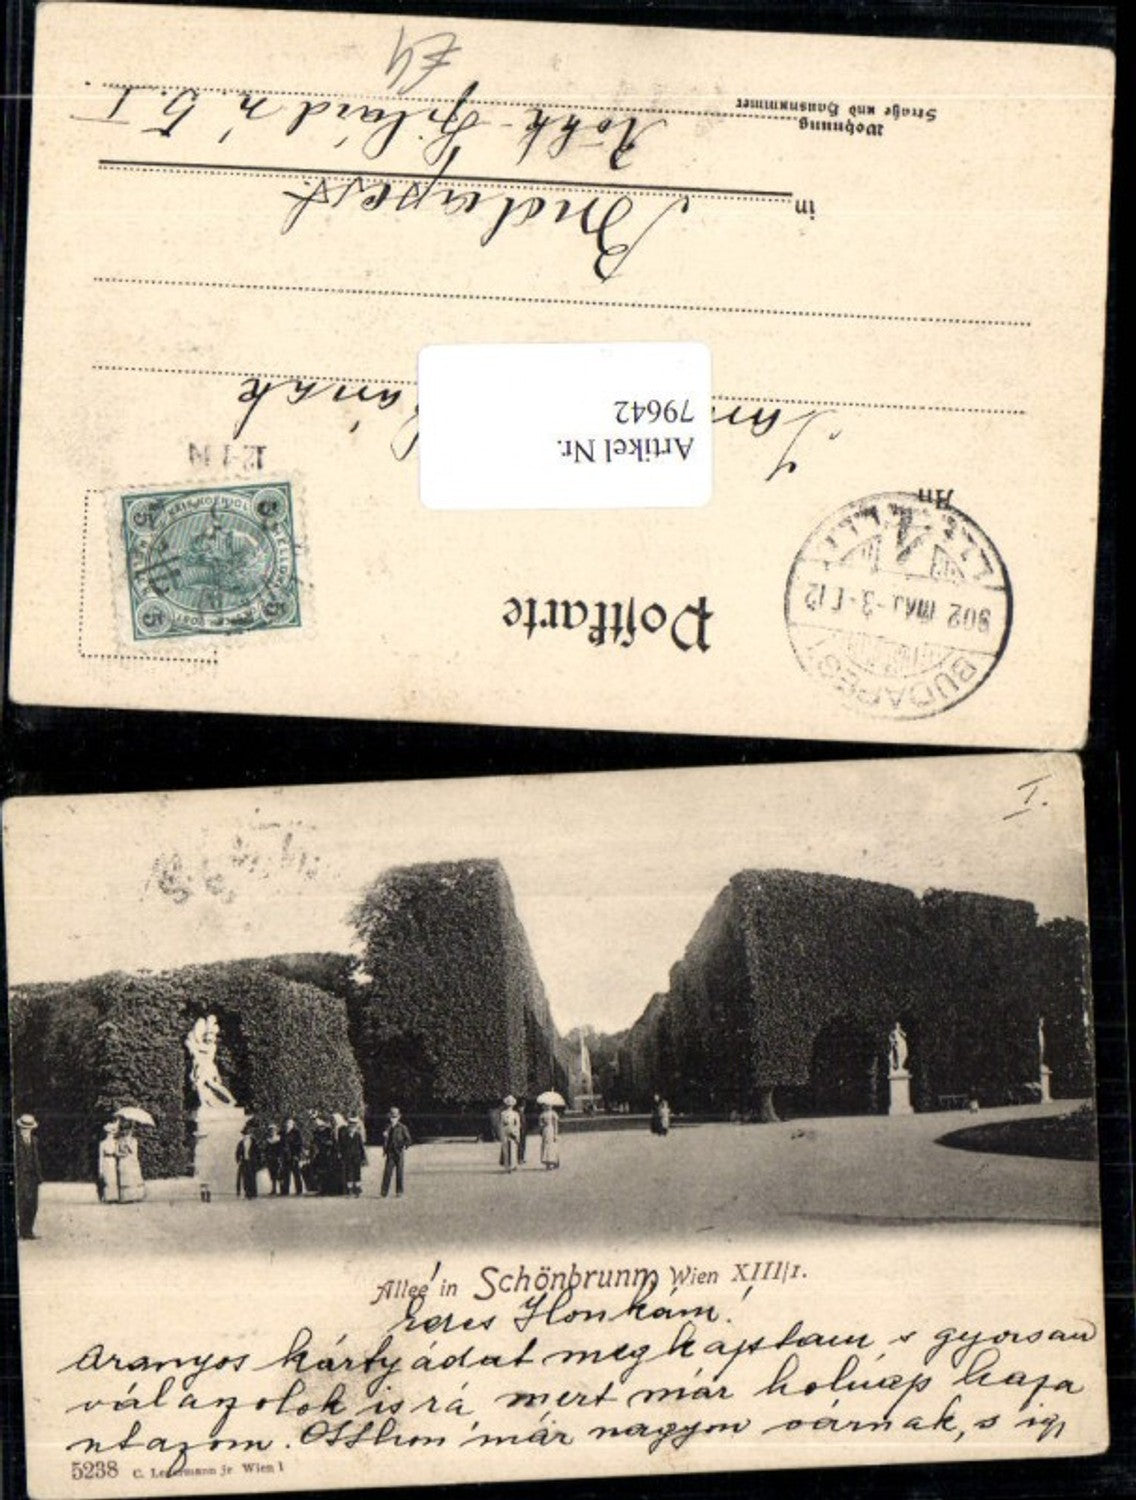 Postkarte
An
Artikel Nr.
79642
in Budapest
Wohnung
Straße und Hausnummer
Rökk-Szilárd u. 5. I
BUDAPEST
902 MÁJ.-3-
5
5
5
5
I.
Allee in Schönbrunn, Wien XIII/1.
Édes Ilonkám!
Aranyos kártyádat megkaptam s gyorsan
válaszolok is rá, mert már holnap haza
utazom. Otthon már nagyon várnak, s így
5238 C. Ledermann jr. Wien I